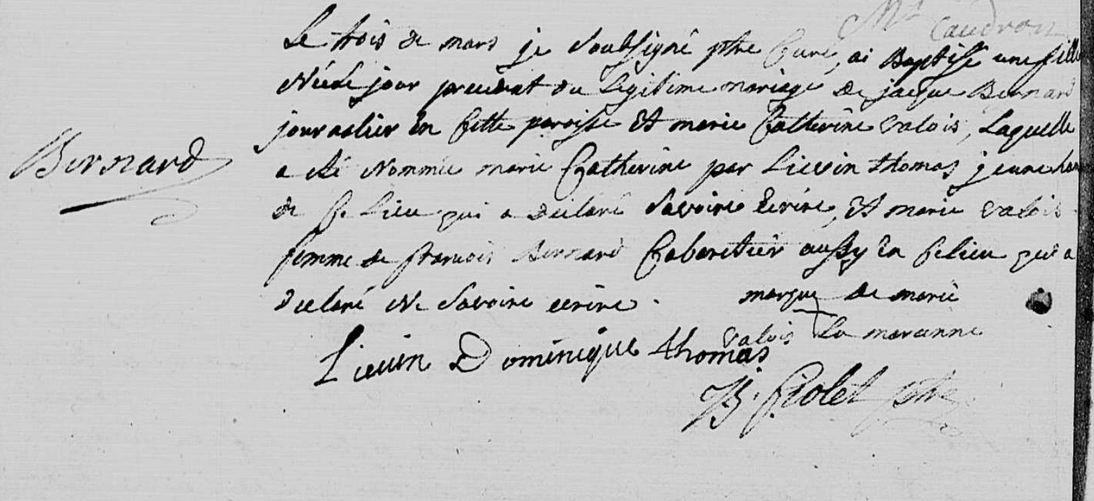 Mr Caudron
Le trois de mars je soubsigné ptre Curé, ai Baptisé une fille
Née le jour precedent du legitime mariage de jacque Bernard
journalier en cette paroisse et marie Catterine valois, Laquelle
Bernard
a eté Nommée marie Catherine par Lievin thomas jeune hom
de ce Lieu qui a déclaré Savoire écrire, et marie valois
femme de francois Bernard Cabaretier aussy en ce lieu qui a
declaré Ne Savoire ecrire.
marque de marie
valois la maranne
Lieuin Dominique thomas
ptre